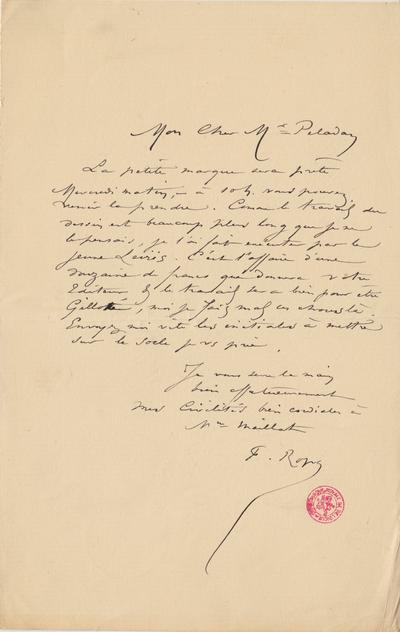 Mon Cher Mr Peladan
La petite marque sera prête
Mercredi matin, – à 10 h. vous pouvez
venir la prendre. Come le travail du
dessin est beaucoup plus long que je ne
le pensais, je l'ai fait executer par le
jeune C'est l'affaire d'une
douzaine de francs que donnera votre
Editeur & le travail sera bien pour être
Gilloté, moi je fais mal ces choses là.
Envoyez moi vite les initiales à mettre
sur le socle je vs prie.
Je vous serre la main
bien affectueusement
mes Civilités bien cordiales à
Mme Maillat
F. Rops